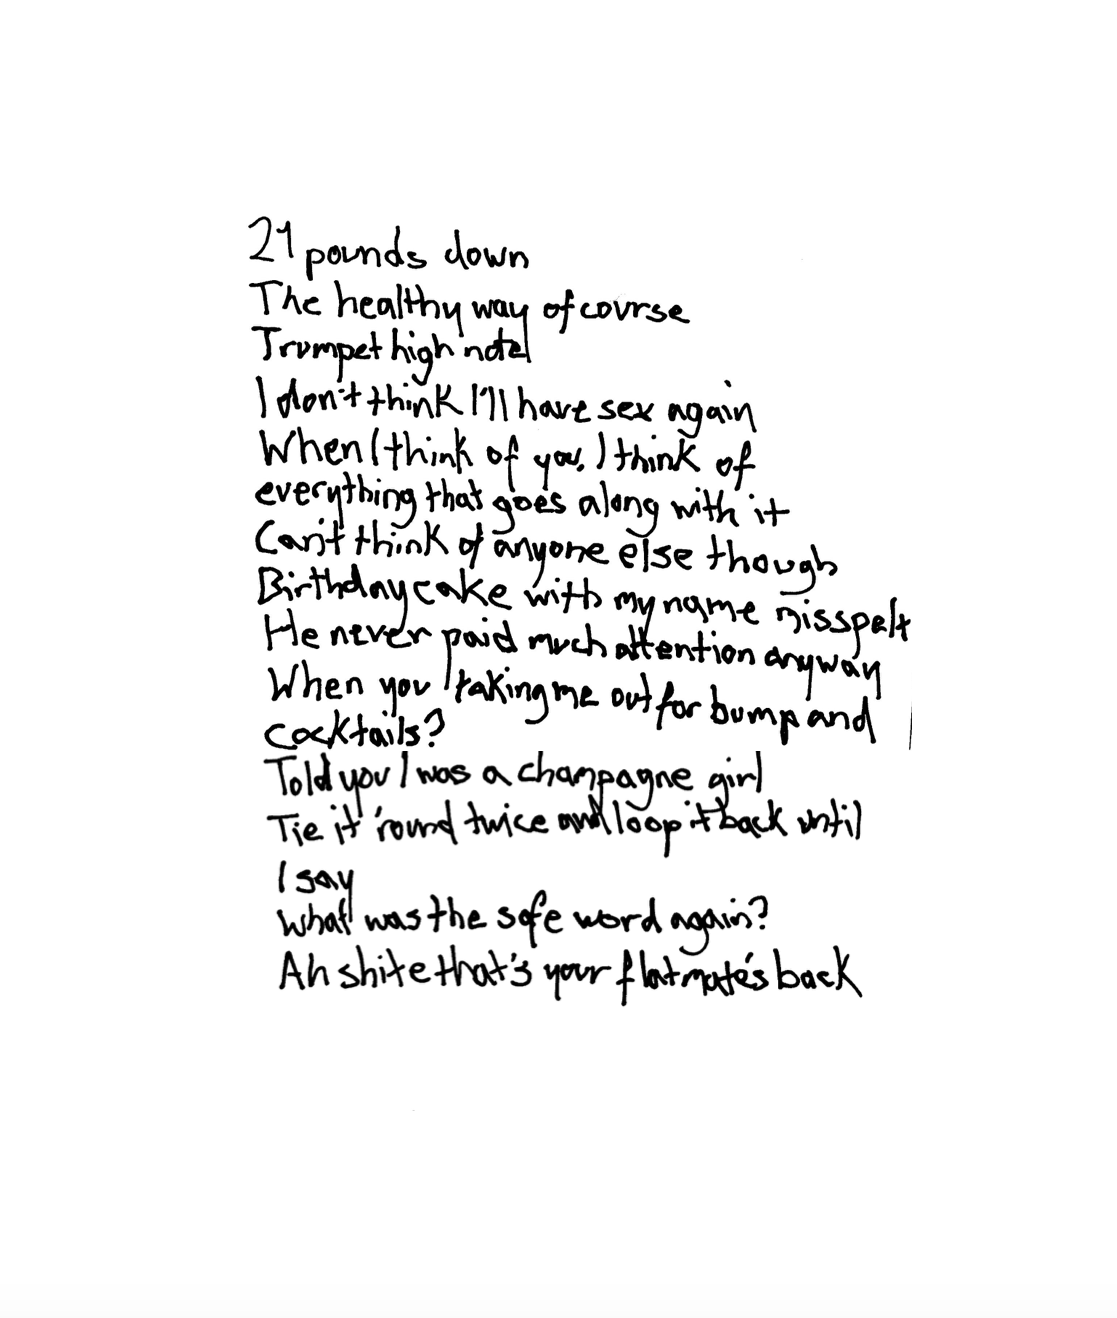 21 pounds down
The healthy way of course
Trumpet high note
I don't think I'll have sex again
When I think of you, I think of
everything that goes along with it
Can't think of anyone else though
Birthday cake with my name misspelt
He never paid much attention anyway
When you taking me out for bump and
cocktails?
Told you I was a champagne girl
Tie it 'round twice and loop it back until
I say
What was the safe word again?
Ah shite that's your flatmate's back